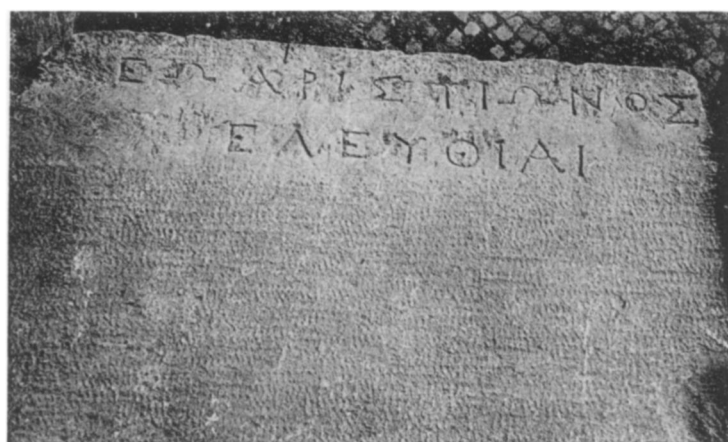 ΑΡΙΣΤΙΩΝΟΣ
ΕΛΕΥΘΙΑΙ